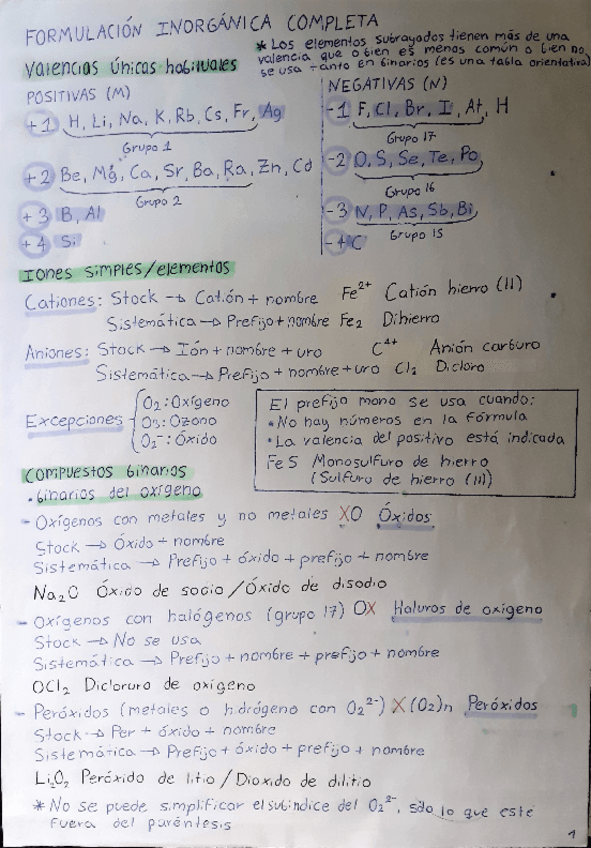 FORMULACIÓN INORGÁNICA COMPLETA
* Los elementos subrayados tienen más de una
valencia que o bien es menos común o bien no
se usa tanto en binarios (es una tabla orientativa)
Valencias únicas habituales
POSITIVAS (M)
+1 H, Li, Na, K, Rb, Cs, Fr, Ag
Grupo 1
+2 Be, Mg, Ca, Sr, Ba, Ra, Zn, Cd
Grupo 2
+3 B, Al
+4 Si
NEGATIVAS (N)
-1 F, Cl, Br, I, At, H
Grupo 17
-2 O, S, Se, Te, Po
Grupo 16
-3 N, P, As, Sb, Bi
Grupo 15
-4 C
Iones simples/elementos
Cationes: Stock → Catión + nombre Fe²⁺ Catión hierro (II)
Sistemática → Prefijo + nombre Fe₂ Dihierro
Aniones: Stock → Ión + nombre + uro C⁴⁺ Anión carburo
Sistemática → Prefijo + nombre + uro Cl₂ Dicloro
Excepciones
O₂: Oxígeno
O₃: Ozono
O₂⁻: Óxido
El prefijo mono se usa cuando:
• No hay números en la fórmula
• La valencia del positivo está indicada
FeS Monosulfuro de hierro
(Sulfuro de hierro (III)
Compuestos binarios
• Binarios del oxígeno
- Oxígenos con metales y no metales XO Óxidos
Stock → Óxido + nombre
Sistemática → Prefijo + óxido + prefijo + nombre
Na₂O Óxido de socio / Óxido de disodio
- Oxígenos con halógenos (grupo 17) OX Haluros de oxígeno
Stock → No se usa
Sistemática → Prefijo + nombre + prefijo + nombre
OCl₂ Dicloruro de oxígeno
- Peróxidos (metales o hidrógeno con O₂²⁻) X(O₂)n Peróxidos
Stock → Per + óxido + nombre
Sistemática → Prefijo + óxido + prefijo + nombre
Li₂O₂ Peróxido de litio / Dioxido de dilitio
* No se puede simplificar el subíndice del O₂²⁻, sólo lo que esté
fuera del paréntesis
1